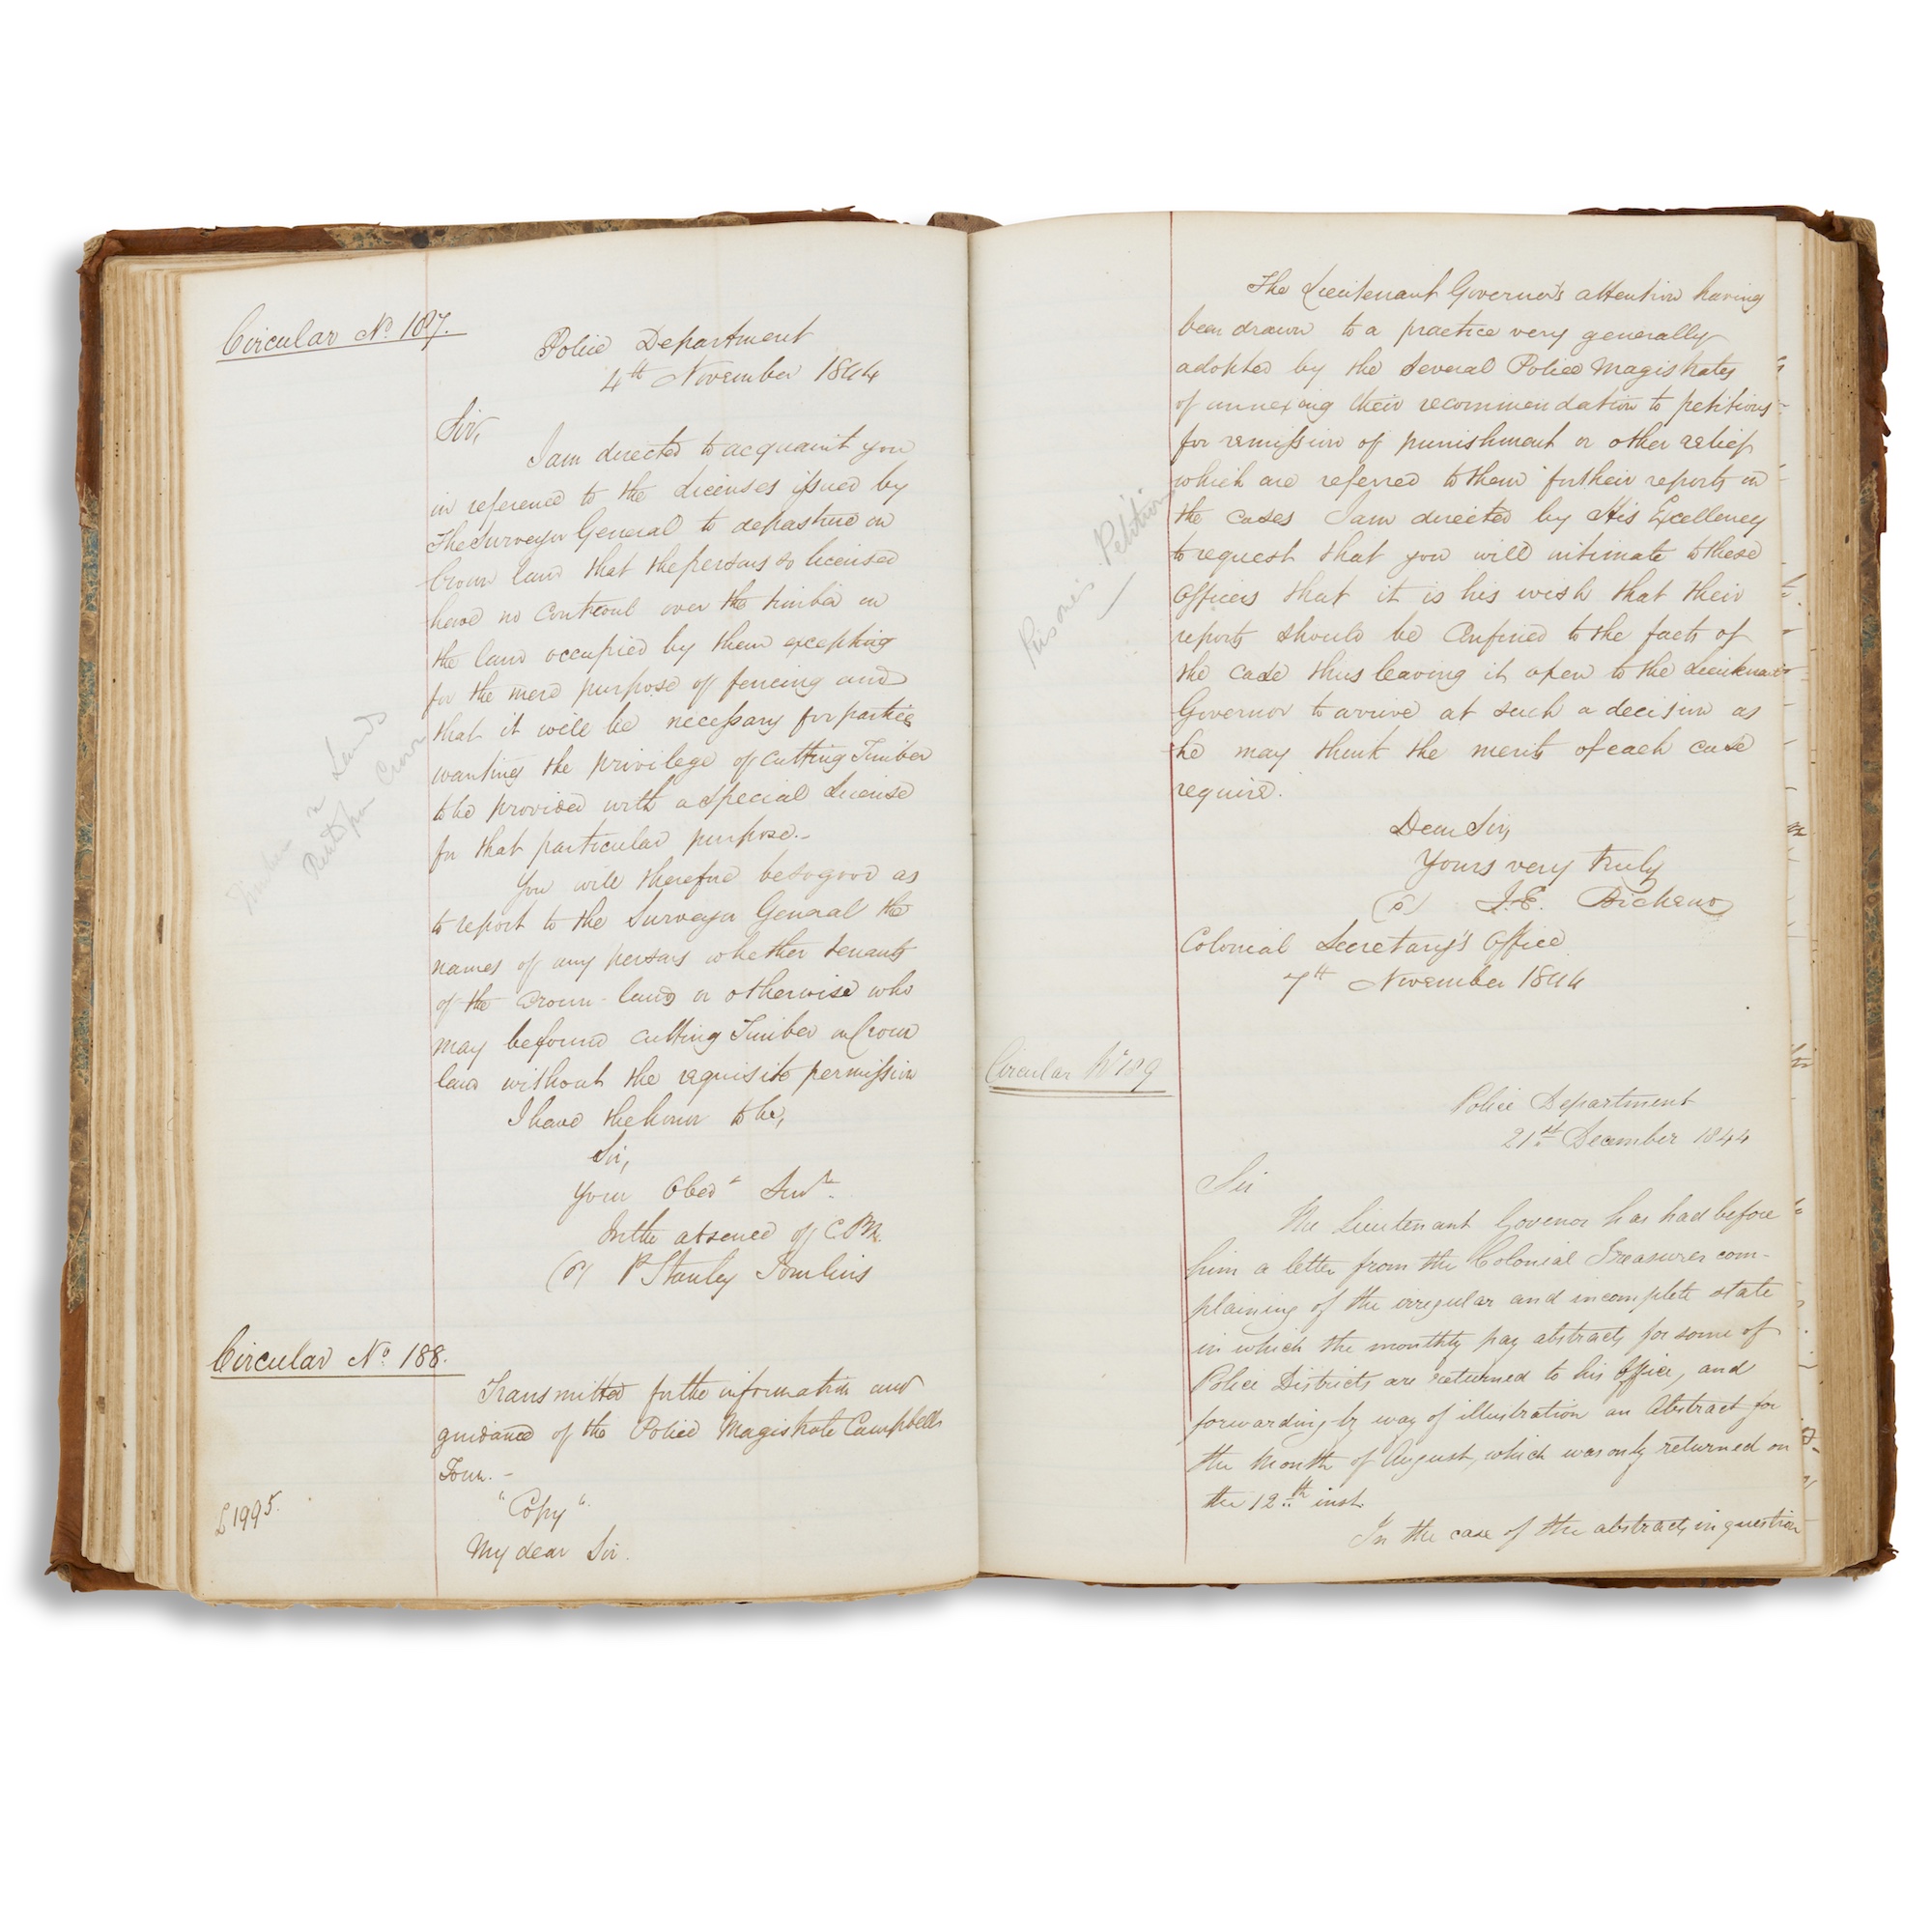 Circular No. 187.
Police Department
4th November 1844
Sir,
I am directed to acquaint you
in reference to the Licenses issued by
The Surveyor General to depasture on
Crown land that the persons so licensed
have no Controul over the timber on
the land occupied by them excepting
for the mere purpose of fencing and
that it will be necessary for parties
wanting the privilege of cutting Timber
to be provided with a special License
for that particular purpose.-
You will therefore be so good as
to report to the Surveyor General the
names of any persons whether tenants
of the Crown land or otherwise who
may be found cutting Timber on Crown
land without the requisite permission
I have the honor to be,
Sir,
Your Obedt Servt.
In the absence of C.P.M.
(s) P Stanley Tomlins
Timber on Lands
Rented from Crown
Circular No. 188.
Transmitted for the information and
guidance of the Police Magistrate Campbells
Town. -
L1995.
"Copy"
My dear Sir.
The Lieutenant Governor's attention having
been drawn to a practice very generally
adopted by the several Police Magistrates
of annexing their recommendation to petitions
for remission of punishment or other relief
which are referred to them for their reports on
the cases I am directed by His Excellency
to request that you will intimate to these
Officers that it is his wish that their
reports should be Confined to the facts of
the case thus leaving it open to the Lieutenant
Governor to arrive at such a decision as
he may think the merits of each case
require.
Prisoners Petitions
Dear Sir,
Yours very truly
(s) J.E. Bicheno
Colonial Secretary's Office
7th November 1844
Circular No 189
Police Department
21st December 1844
Sir
The Lieutenant Govenor has had before
him a letter from the Colonial Treasurer com-
plaining of the irregular and incomplete state
in which the monthly pay abstracts for some of
Police Districts are returned to his office, and
forwarding by way of illustration an Abstract for
the Month of August, which was only returned on
the 12th inst.
In the case of the abstracts in question